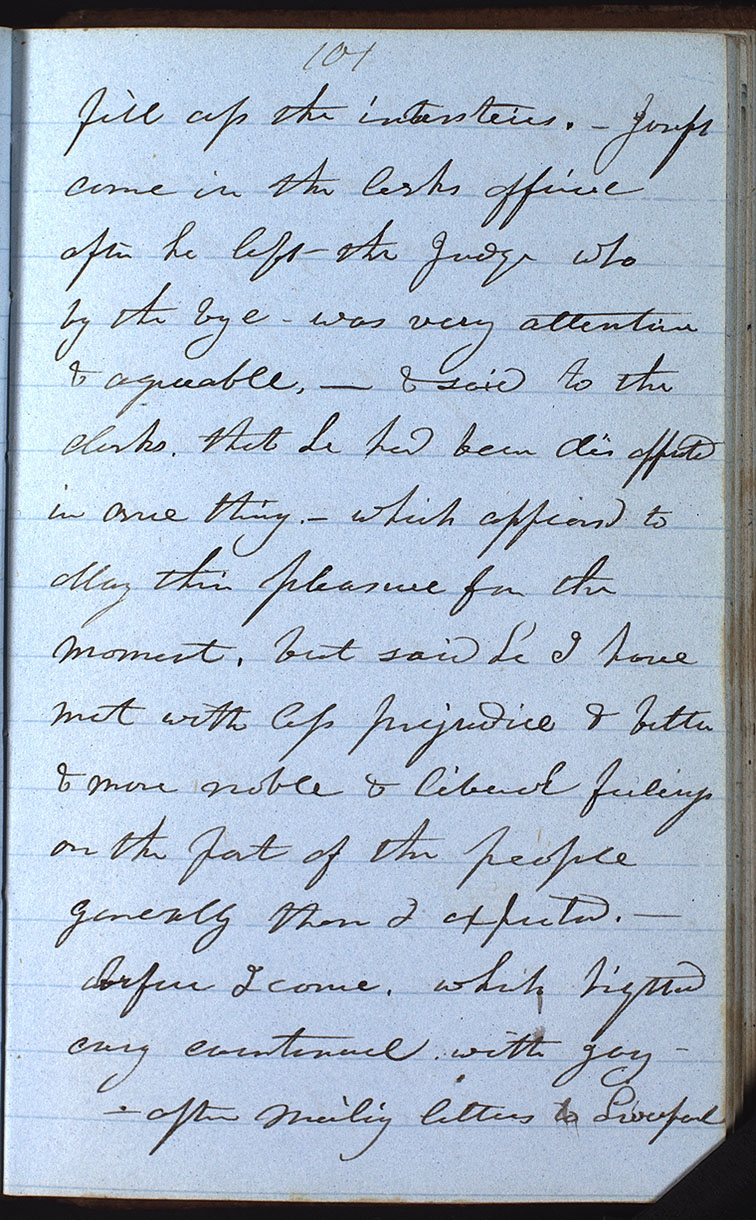 101
fill up the intersteces. - Joseph
come in the clerks offiice
after he left - the Judge who
by the bye - was very attentive
& agreeable, — & said to the
clerks. that he had been dis appted
in one thing. - which appeard to
allay thier pleasure for the
moment. but said he I have
met with less prejudice & better
& more noble & liberal feelings
on the part of the people
generally than I expected. —
before I come. which lighted
evry countinuel. with goy -
- after mailig letters to Liverpool